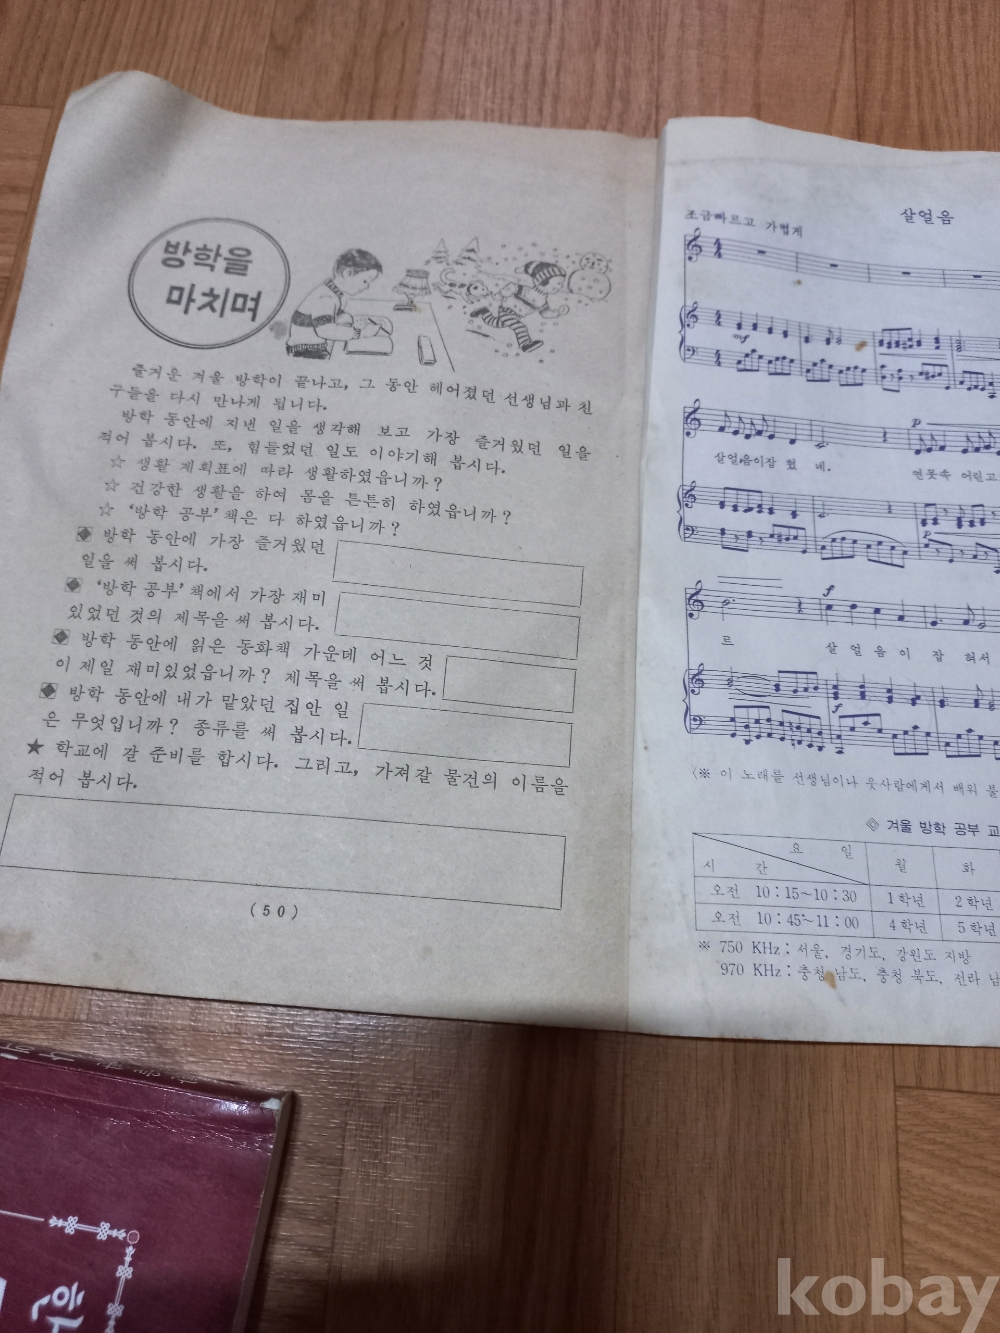 방학을
마치며
즐거운 겨울 방학이 끝나고, 그 동안 헤어졌던 선생님과 친
구들을 다시 만나게 됩니다.
방학 동안에 지낸 일을 생각해 보고 가장 즐거웠던 일을
적어 봅시다. 또, 힘들었던 일도 이야기해 봅시다.
☆ 생활 계획표에 따라 생활하였읍니까?
☆ 건강한 생활을 하여 몸을 튼튼히 하였읍니까?
☆ '방학 공부' 책은 다 하였읍니까?
◈ 방학 동안에 가장 즐거웠던
일을 써 봅시다.
◈ '방학 공부' 책에서 가장 재미
있었던 것의 제목을 써 봅시다.
◈ 방학 동안에 읽은 동화책 가운데 어느 것
이 제일 재미있었읍니까? 제목을 써 봅시다.
◈ 방학 동안에 내가 맡았던 집안 일
은 무엇입니까? 종류를 써 봅시다.
★ 학교에 갈 준비를 합시다. 그리고, 가져갈 물건의 이름을
적어 봅시다.
(50)
살얼음
조금빠르고 가볍게
mf
p
살얼음이잡 혔 네. 연못속 어린고
p
f
르 살 얼 음 이 잡 혀서
f
〈※ 이 노래를 선생님이나 웃사람에게서 배워 불
◈ 겨울 방학 공부 교
요 일
시 간 월 화
오전 10:15~10:30 1학년 2학년
오전 10:45~11:00 4학년 5학년
※ 750 KHz : 서울, 경기도, 강원도 지방
970 KHz : 충청 남도, 충청 북도, 전라 남
kobay